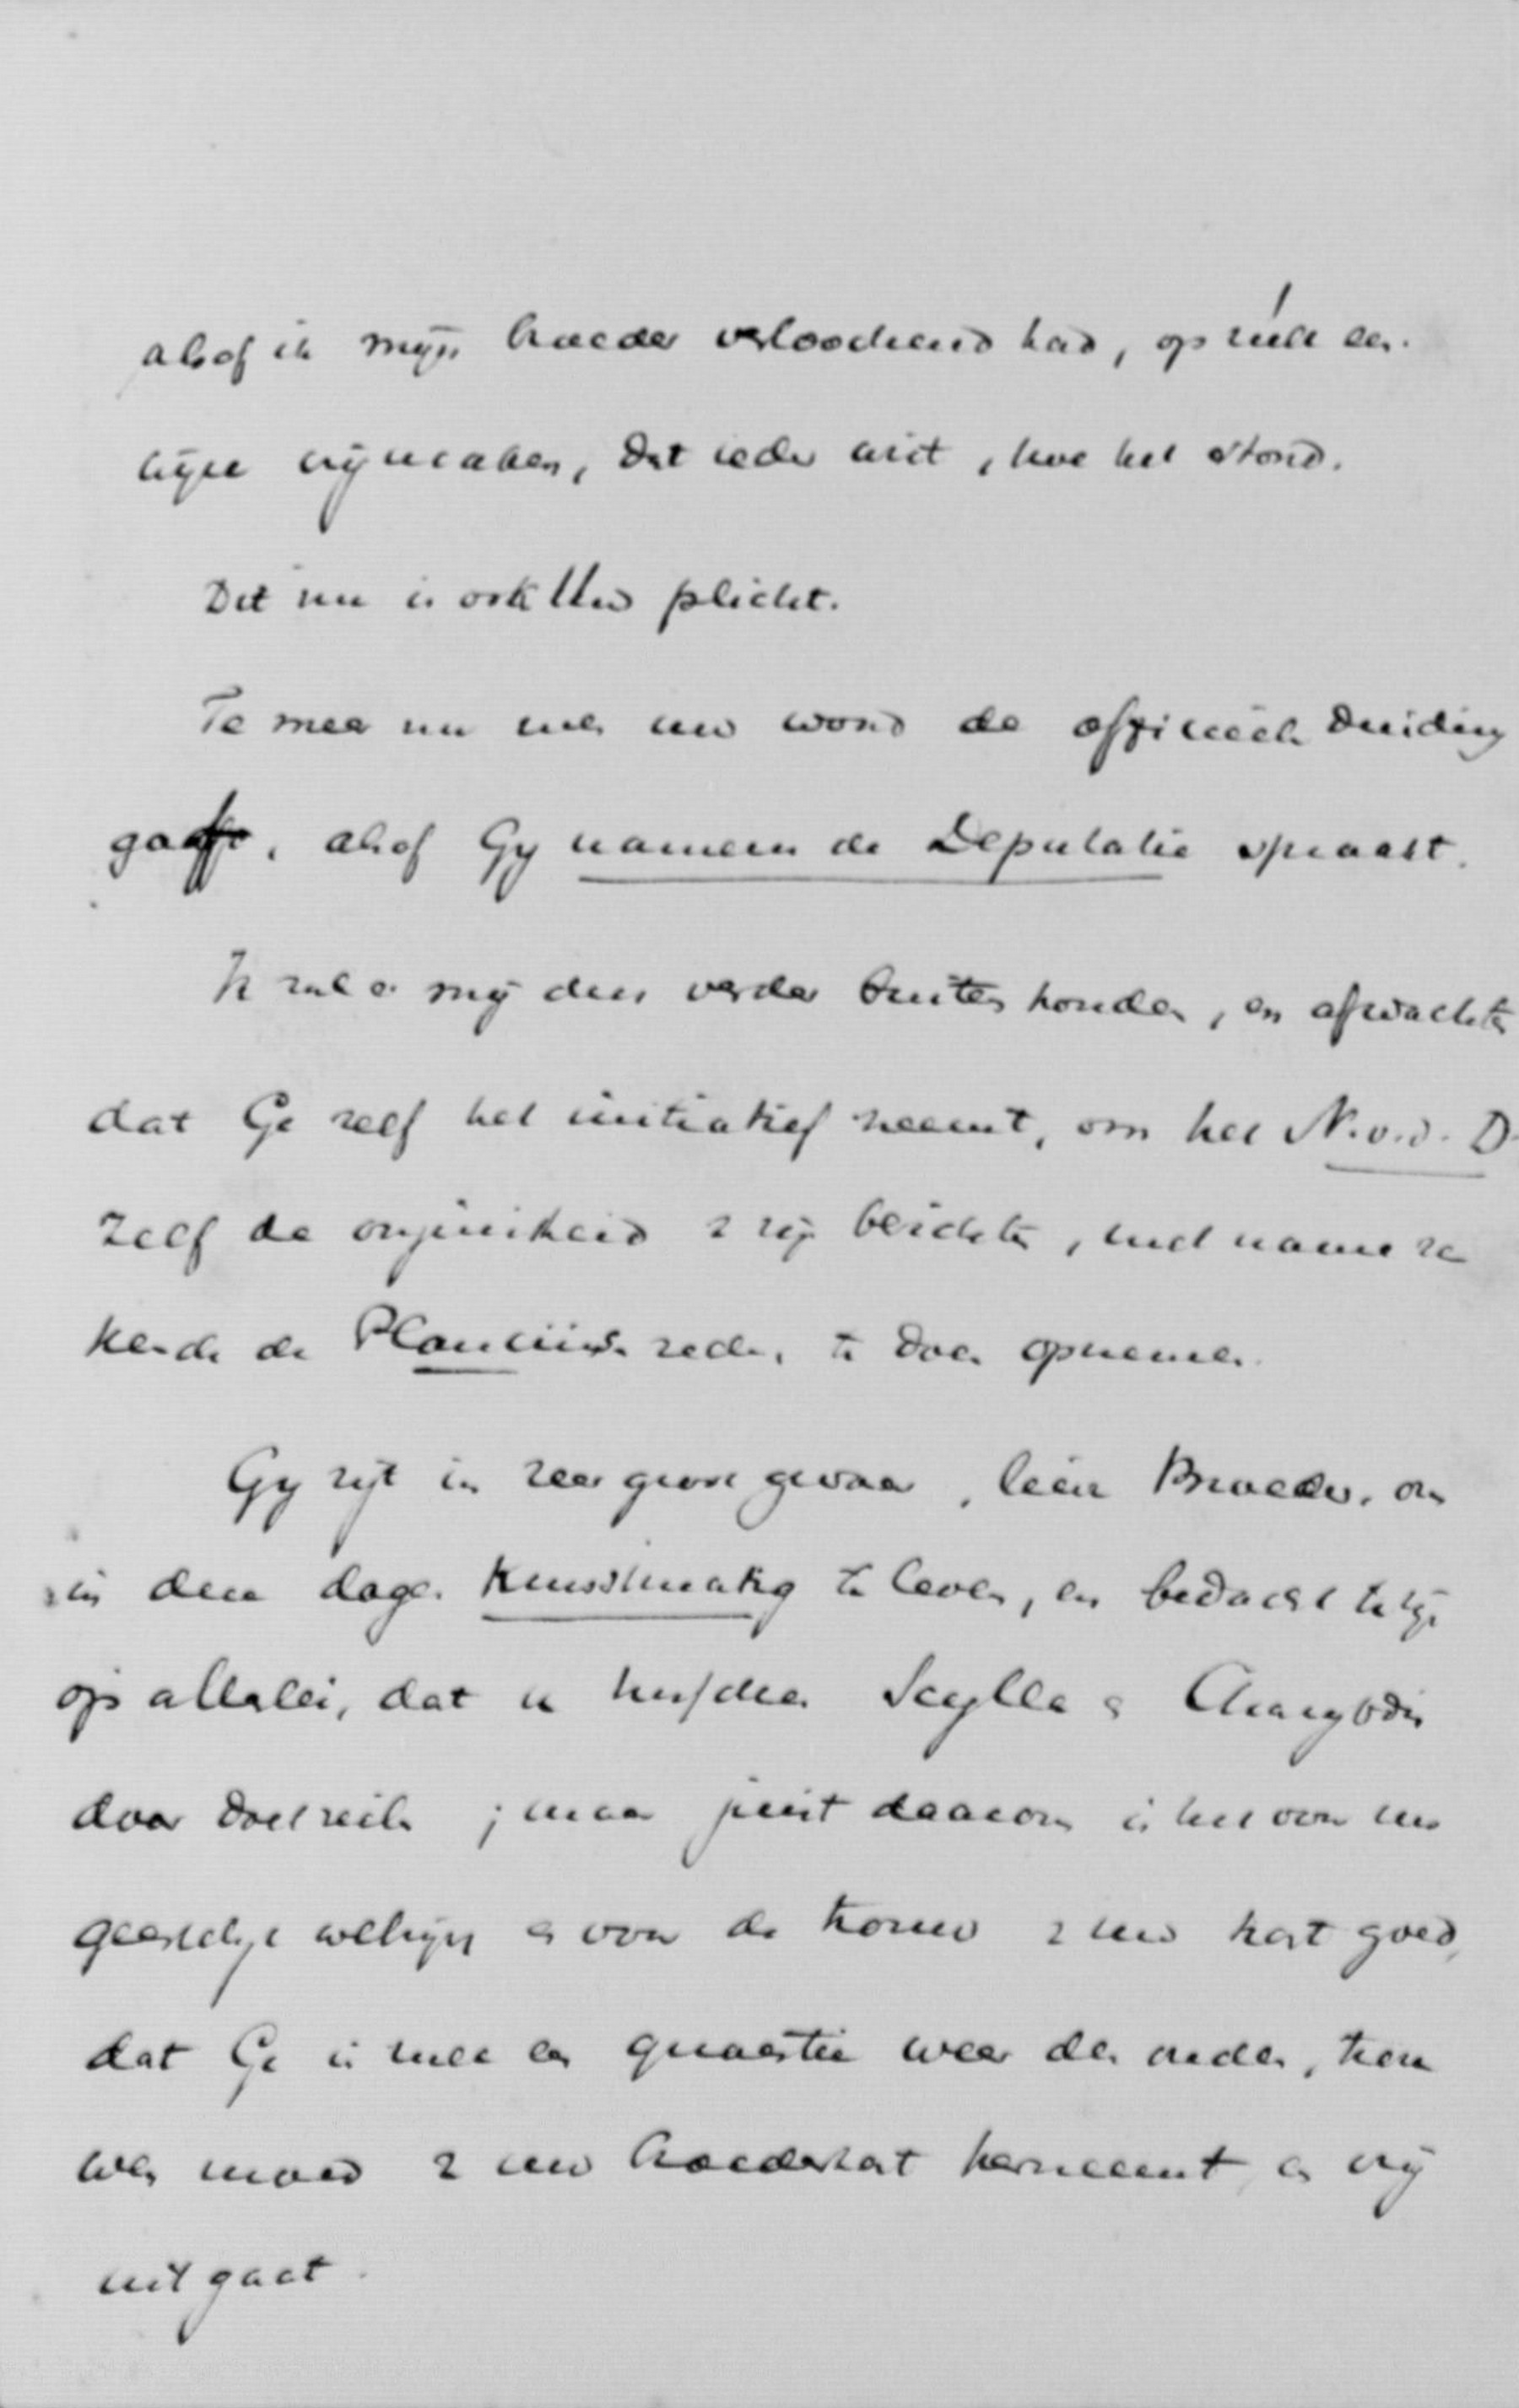 alsof ik mijn broeder verloochend had, op zúlk een
wijze vrijmaken, dat ieder wist, hoe het stond.
Dit nu is ook Uw plicht.
Te meer nu men uw woord de officieele duiding
gaf, alsof Gy namens de Deputatie spraakt.
Ik zal er mij dus verder buiten houden, en afwachten
dat Ge zelf het initiatief neemt, om het N.v.d.D.
zelf de onjuistheid v zijn berichten, met name ze
kerde de Plancius rede, te doen opnemen.
Gy zijt in zeer groot gevaar, lieve Broeder, om
in deze dagen kunstmatig te leven, en bedacht te zijn
op allerlei, dat u tusschen Scylla en Charybdis
door doet zeilen; maar juist daarom is het voor uw
geestelijk welzijn en voor de trouw v uw hart goed,
dat Ge in zulk een quaestie weer den ouden, trou
wen moed v uw broederhart herneemt, en vrij
uit gaat.